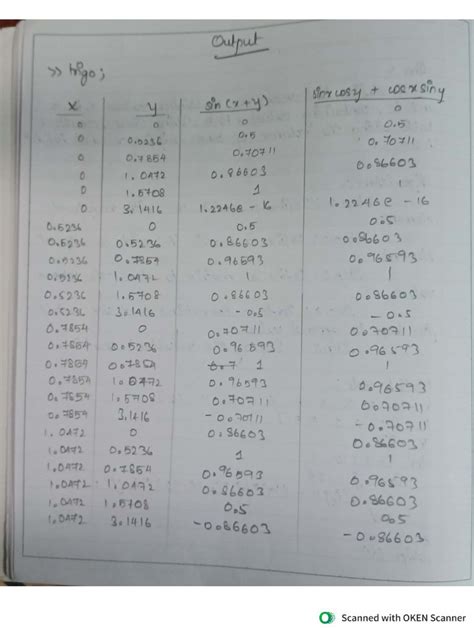 Output
>> trigo;
x y sin(x+y) sinx cosy + cosx siny
0 0 0 0
0 0.5236 0.5 0.5
0 0.7854 0.70711 0.70711
0 1.0472 0.86603 0.86603
0 1.5708 1 1
0 3.1416 1.2246e-16 1.2246e-16
0.5236 0 0.5 0.5
0.5236 0.5236 0.86603 0.86603
0.5236 0.7854 0.96593 0.96593
0.5236 1.0472 1 1
0.5236 1.5708 0.86603 0.86603
0.5236 3.1416 -0.5 -0.5
0.7854 0 0.70711 0.70711
0.7854 0.5236 0.96593 0.96593
0.7854 0.7854 1 1
0.7854 1.0472 0.96593 0.96593
0.7854 1.5708 0.70711 0.70711
0.7854 3.1416 -0.70711 -0.70711
1.0472 0 0.86603 0.86603
1.0472 0.5236 1 1
1.0472 0.7854 0.96593 0.96593
1.0472 1.0472 0.86603 0.86603
1.0472 1.5708 0.5 0.5
1.0472 3.1416 -0.86603 -0.86603
Scanned with OKEN Scanner